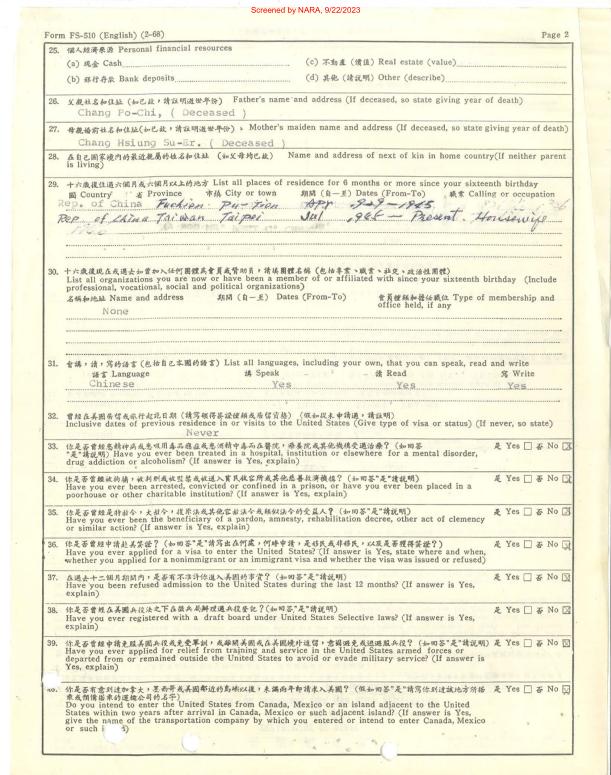 Screened by NARA, 9/22/2023
Form FS-510 (English) (2-68) Page 2
25. 個人經濟來源 Personal financial resources
(a) 現金 Cash (c) 不動產 (價值) Real estate (value)
(b) 銀行存款 Bank deposits (d) 其他 (請說明) Other (describe)
26. 父親姓名和住址 (如已故,請註明逝世年份) Father's name and address (If deceased, so state giving year of death)
Chang Po-Chi, ( Deceased )
27. 母親婚前姓名和住址(如已故,請註明逝世年份)、Mother's maiden name and address (If deceased, so state giving year of death)
Chang Hsiung Su-Er. ( Deceased )
28. 在自己國家境內的最近親屬的姓名和住址 (如父母均已故) Name and address of next of kin in home country(If neither parent
is living)
29. 十六歲後住過六個月或六個月以上的地方 List all places of residence for 6 months or more since your sixteenth birthday
國 Country 省 Province 市鎮 City or town 期間 (自一至) Dates (From-To) 職業 Calling or occupation
Rep. of China Fuchien Pu-Tien Apr. 1929 - 1945
Rep. of China Taiwan Taipei Jul. 1945 - Present. Housewife
30. 十六歲後現在或過去如曾加入任何團體為會員或贊助員,請填團體名稱 (包括專業、職業、社交、政治性團體)
List all organizations you are now or have been a member of or affiliated with since your sixteenth birthday (Include
professional, vocational, social and political organizations)
名稱和地址 Name and address 期間 (自一至) Dates (From-To) 會員種類和擔任職位 Type of membership and
office held, if any
None
31. 會講,讀,寫的語言 (包括自己本國的語言) List all languages, including your own, that you can speak, read and write
語言 Language 講 Speak 讀 Read 寫 Write
Chinese Yes Yes Yes
32. 曾經在美國居留或旅行起訖日期 (請寫獲得簽證種類或居留資格) (假如從未申請過,請註明)
Inclusive dates of previous residence in or visits to the United States (Give type of visa or status) (If never, so state)
Never
33. 你是否曾經患精神病或患吸用毒品癮症或患酒精中毒而在醫院,療養院或其他機構受過治療? (如回答 是 Yes □ 否 No ☒
"是"請說明) Have you ever been treated in a hospital, institution or elsewhere for a mental disorder,
drug addiction or alcoholism? (If answer is Yes, explain)
34. 你是否曾經被拘捕,被判刑或被監禁或被送入貧民收容所或其他慈善救濟機構? (如回答"是"請說明) 是 Yes □ 否 No ☒
Have you ever been arrested, convicted or confined in a prison, or have you ever been placed in a
poorhouse or other charitable institution? (If answer is Yes, explain)
35. 你是否曾經是特赦令,大赦令,復原法或其他寬赦法令或類似法令的受益人? (如回答"是"請說明) 是 Yes □ 否 No ☒
Have you ever been the beneficiary of a pardon, amnesty, rehabilitation decree, other act of clemency
or similar action? (If answer is Yes, explain)
36. 你是否曾經申請赴美簽證? (如回答"是"請寫出在何處,何時申請,是移民或非移民,以及是否獲得簽證?) 是 Yes □ 否 No ☒
Have you ever applied for a visa to enter the United States? (If answer is Yes, state where and when,
whether you applied for a nonimmigrant or an immigrant visa and whether the visa was issued or refused)
37. 在過去十二個月期間內,是否有不准許你進入美國的事實? (如回答"是"請說明) 是 Yes □ 否 No ☒
Have you been refused admission to the United States during the last 12 months? (If answer is Yes,
explain)
38. 你是否曾經在美國兵役法之下在徵兵局辦理過兵役登記? (如回答"是"請說明) 是 Yes □ 否 No ☒
Have you ever registered with a draft board under United States Selective laws? (If answer is Yes,
explain)
39. 你是否曾經申請免服美國兵役或免受軍訓,或離開美國或在美國境外逗留,意圖避免或逃避服兵役? (如回答"是"請說明) 是 Yes □ 否 No ☒
Have you ever applied for relief from training and service in the United States armed forces or
departed from or remained outside the United States to avoid or evade military service? (If answer is
Yes, explain)
你是否有意到達加拿大,墨西哥或美國鄰近的島嶼以後,未滿兩年即請求入美國? (假如回答"是"請寫你到達該地方所搭 是 Yes □ 否 No ☒
乘或預備搭乘的運輸公司的名字)
Do you intend to enter the United States from Canada, Mexico or an island adjacent to the United
States within two years after arrival in Canada, Mexico or such adjacent island? (If answer is Yes,
give the name of the transportation company by which you entered or intend to enter Canada, Mexico
or such